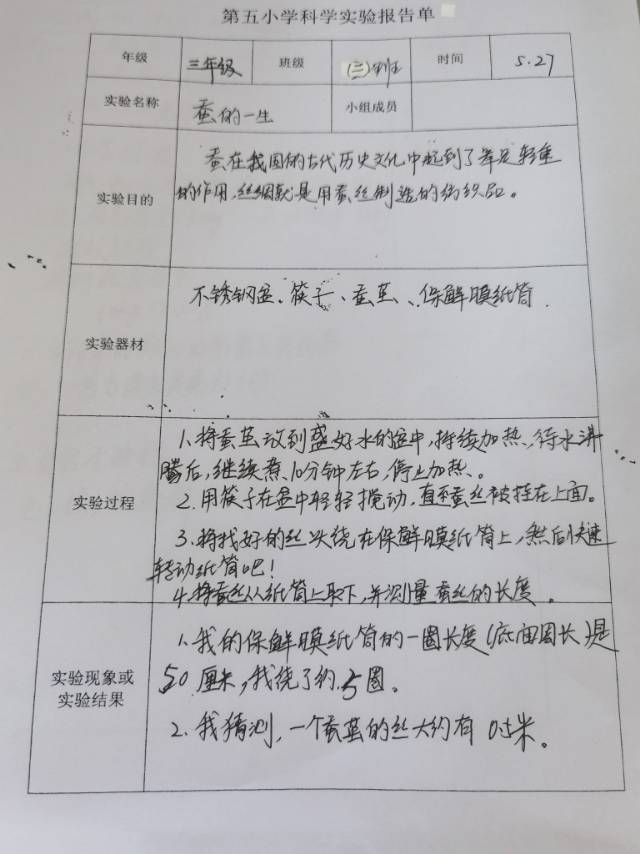 第五小学科学实验报告单
年级 三年级 班级 (三)班 时间 5.27
实验名称 蚕的一生 小组成员
实验目的
蚕在我国的古代历史文化中起到了举足轻重
的作用,丝绸就是用蚕丝制造的纺织品。
实验器材
不锈钢盆、筷子、蚕茧、保鲜膜纸筒
实验过程
1、将蚕茧放到盛好水的盆中,持续加热、待水沸
腾后,继续煮10分钟左右,停止加热、。
2.用筷子在盆中轻轻搅动,直至蚕丝被挂在上面。
3.将找好的丝头绕在保鲜膜纸筒上,然后快速
转动纸筒吧!
4.将蚕丝从纸筒上取下,并测量蚕丝的长度。
实验现象或
实验结果
1.我的保鲜膜纸筒的一圈长度(底面周长)是
50厘米,我绕了约5圈。
2.我猜测,一个蚕茧的丝大约有 米。